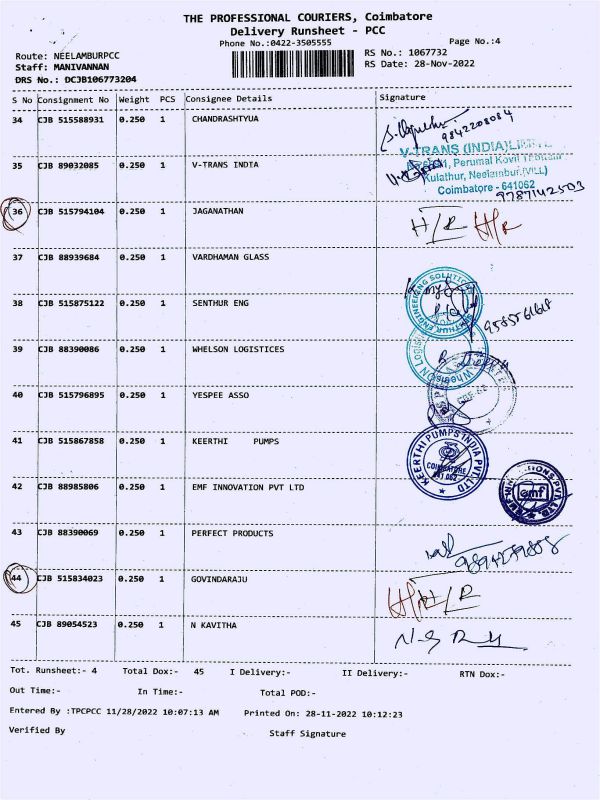 THE PROFESSIONAL COURIERS, Coimbatore
Delivery Runsheet - PCC
Phone No.:0422-3505555
Page No.:4
Route: NEELAMBURPCC
RS No.: 1067732
Staff: MANIVANNAN
RS Date: 28-Nov-2022
DRS No.: DCJB106773204
S No Consignment No Weight PCS Consignee Details Signature
34 CJB 515588931 0.250 1 CHANDRASHTYUA
9842208084
V-TRANS (INDIA) LIMITED
35 CJB 89032085 0.250 1 V-TRANS INDIA
Perumal Kovil
Kulathur, Neelambur.(VILL)
Coimbatore - 641062
9787142503
36 CJB 515794104 0.250 1 JAGANATHAN
H/R H/R
37 CJB 88939684 0.250 1 VARDHAMAN GLASS
38 CJB 515875122 0.250 1 SENTHUR ENG
39 CJB 88390086 0.250 1 WHELSON LOGISTICES
40 CJB 515796895 0.250 1 YESPEE ASSO
41 CJB 515867858 0.250 1 KEERTHI PUMPS
KEERTHI PUMPS INDIA PVT. LTD
COIMBATORE
641 062
42 CJB 88985806 0.250 1 EMF INNOVATION PVT LTD
emf
43 CJB 88390069 0.250 1 PERFECT PRODUCTS
44 CJB 515834023 0.250 1 GOVINDARAJU
H/R H/R
45 CJB 89054523 0.250 1 N KAVITHA
Tot. Runsheet:- 4 Total Dox:- 45 I Delivery:- II Delivery:- RTN Dox:-
Out Time:- In Time:- Total POD:-
Entered By :TPCPCC 11/28/2022 10:07:13 AM Printed On: 28-11-2022 10:12:23
Verified By Staff Signature